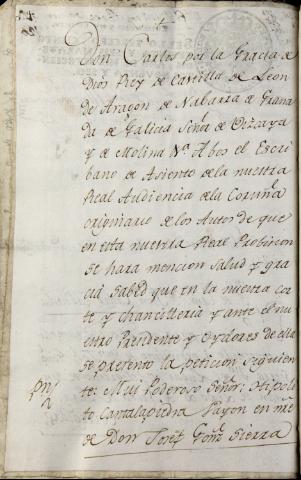 Don Carlos por la Gracia de
Dios Rey de Castilla de Leon
de Aragon de Nabarra de Grana
da de Galicia Señor de Vizcaya
y de Molina Nª. A bos el Escri
bano de Asiento de la nuestra
Real Audiencia de la Coruña
originario de los Autos de que
en esta nuestra Real Probision
se hara mencion salud y gra
cia sabed que en la nuestra cor
te y chancilleria y ante el nu
estro Presidente y Oydores de ella
se presento la peticion siguien
te: Mui Poderoso Señor: Hipoli
to Cantalapiedra Payon en nre
de Don Josef Gonz Sierra